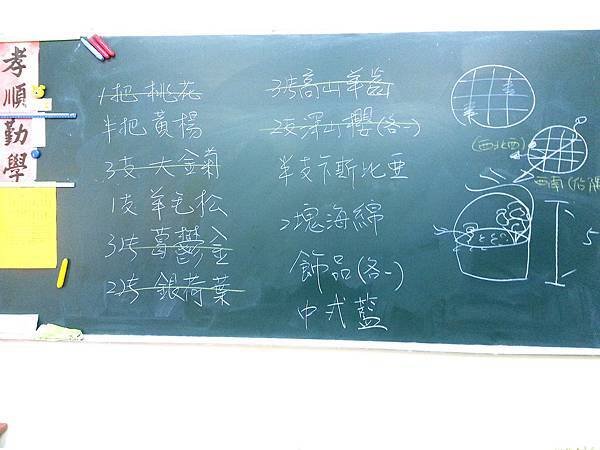 孝順
勤學
1把桃花
半把黃楊
3支大金菊
1支羊毛松
3片葛鬱金
2片銀荷葉
3片高山羊齒
2支深山櫻(各一)
半支卡斯比亞
2塊海綿
飾品(各一)
中式籃
(西北西)
5